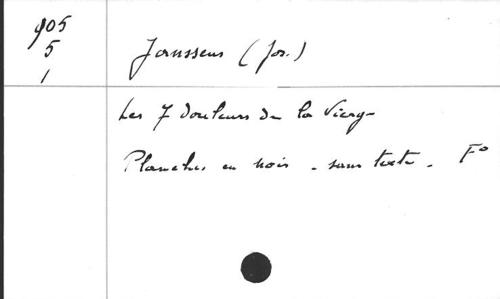 905
5
1
Janssens (Jos.)
Les 7 douleurs de la Vierge
Planches en noir - sans texte. Fº